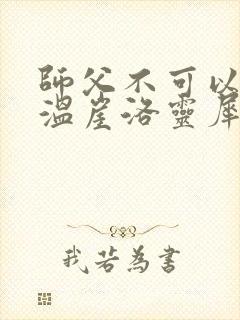 師父不可以
溫崖洛靈犀
我若為書